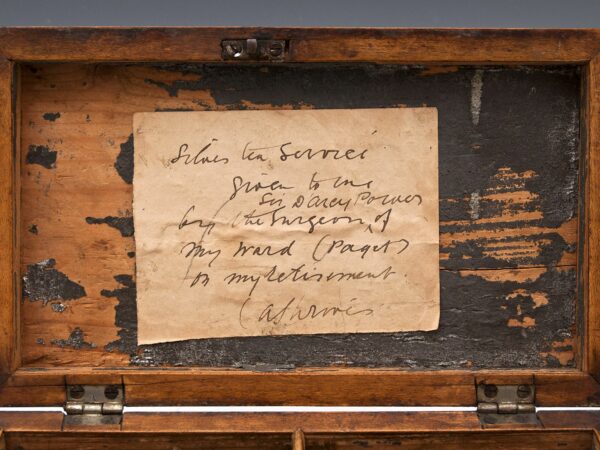 Silver tea Service
given to me
Sir D'Arcy Power
by the Surgeon, of
My Ward (Paget)
on my retirement.